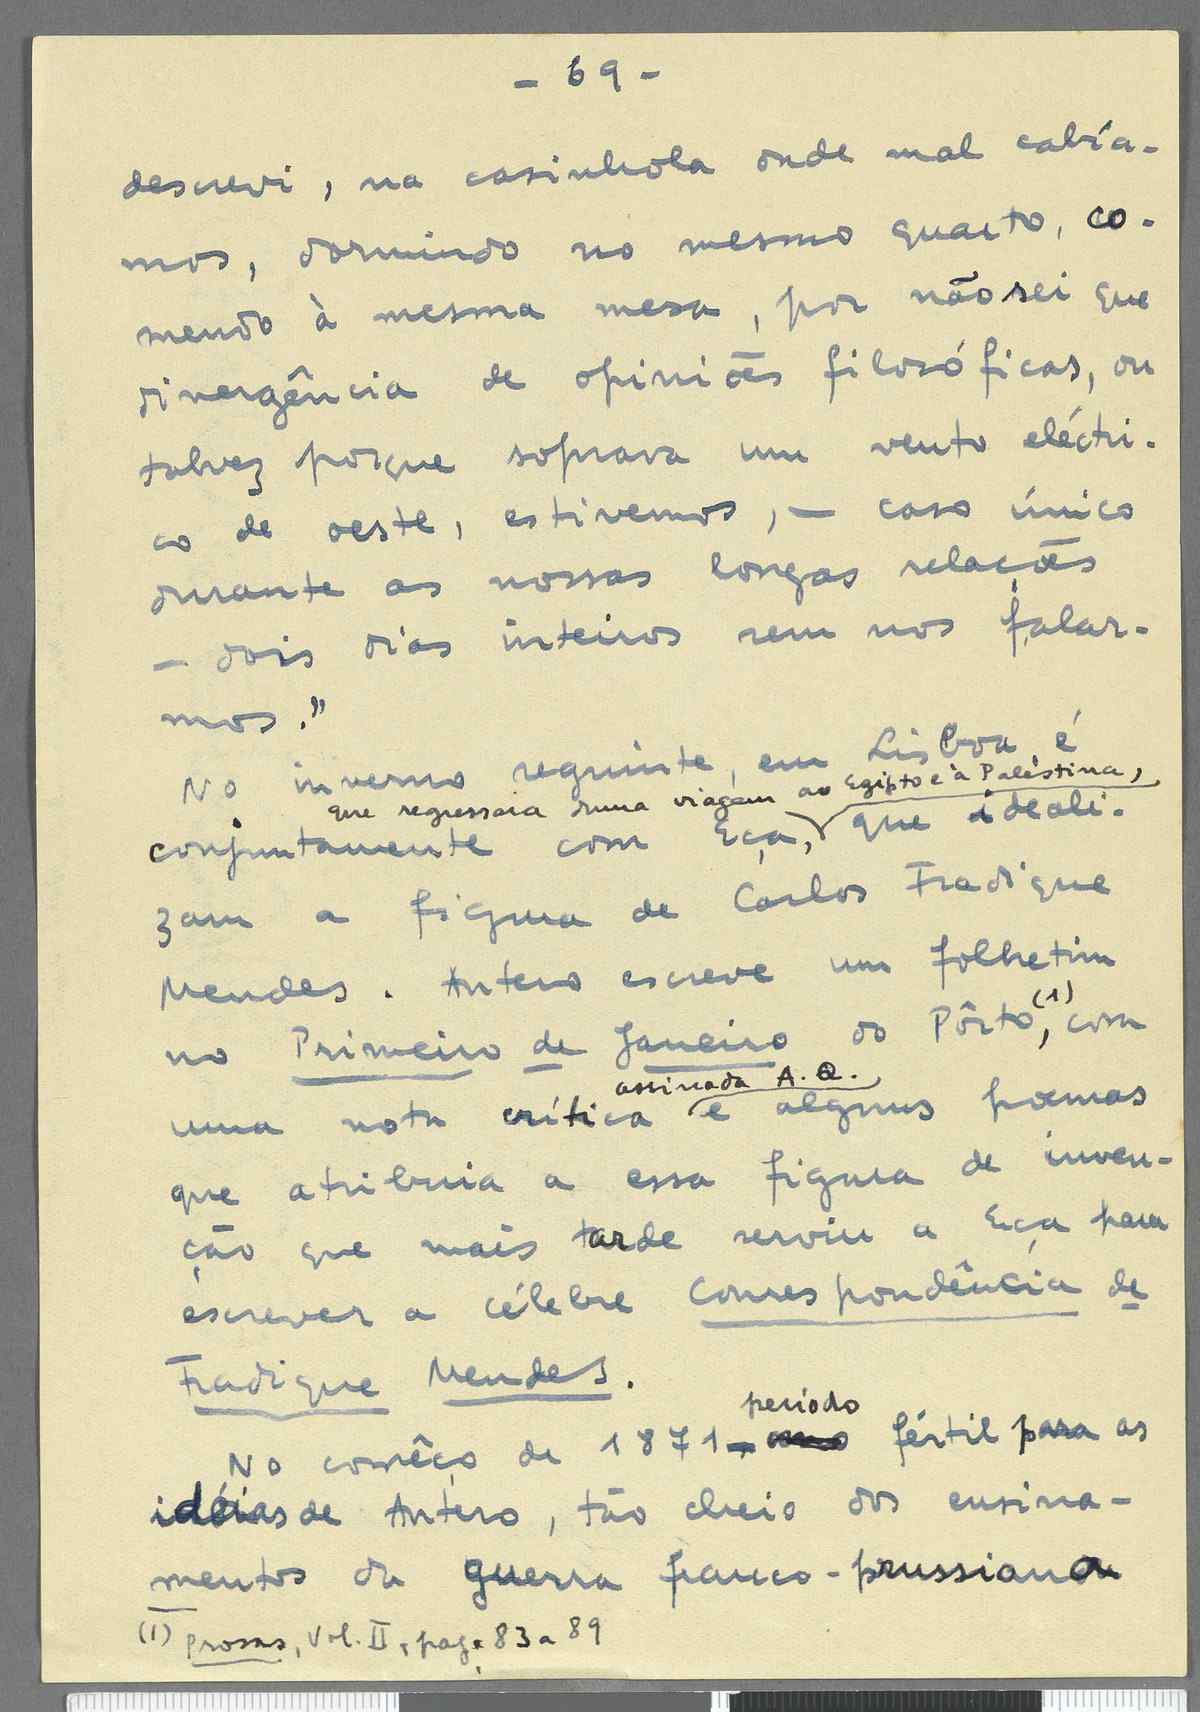 - 69 -
descrevi, na casinhola onde mal cabía-
mos, dormindo no mesmo quarto, co-
mendo à mesma mesa, por não sei que
divergência de opiniões filosóficas, ou
talvez porque soprava um vento eléctri-
co de oeste, estivemos, - caso único
durante as nossas longas relações
- dois dias inteiros sem nos falar-
mos."
No inverno seguinte, em Lisboa, é
que regressara duma viagem ao Egipto e à Palestina,
conjuntamente com Eça, que ideali-
zam a figura de Carlos Fradique
Mendes. Antero escreve um folhetim
no Primeiro de Janeiro do Pôrto,(1) com
assinada A. Q.
uma nota crítica e alguns poemas
que atribuia a essa figura de inven-
ção que mais tarde serviu a Eça para
escrever a célebre Correspondência de
Fradique Mendes.
período
No comêço de 1871, fértil para as
idéias de Antero, tão cheio dos ensina-
mentos da guerra franco-prussiana
(1) Prosas, Vol. II, pag. 83 a 89